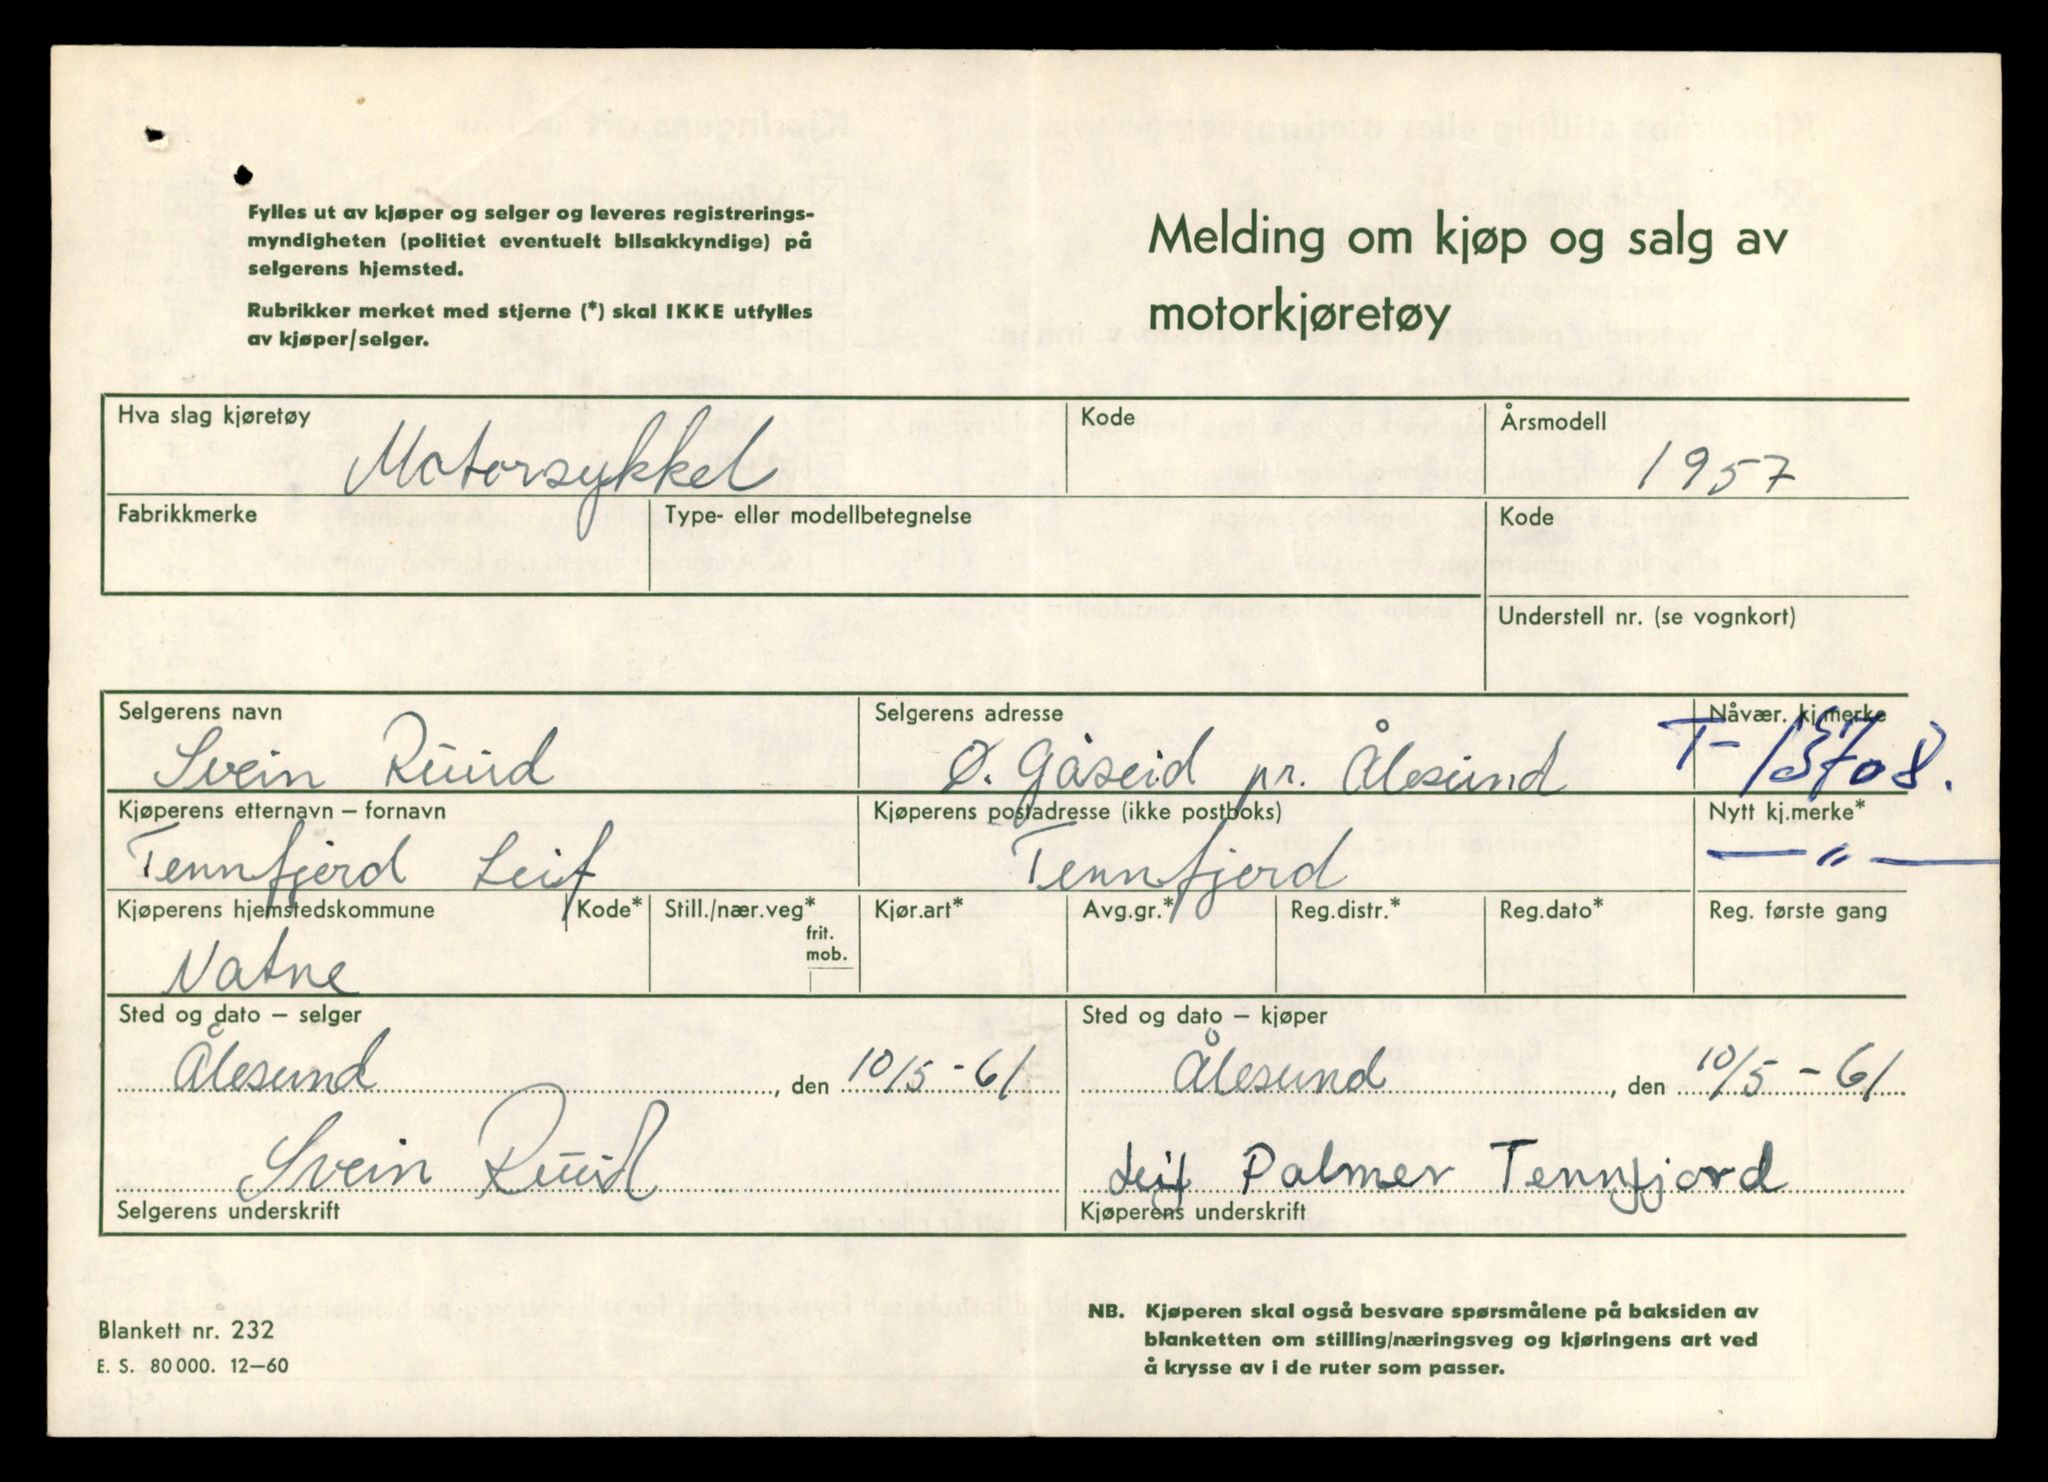 Fylles ut av kjøper og selger og leveres registrerings-
myndigheten (politiet eventuelt bilsakkyndige) på
selgerens hjemsted.
Rubrikker merket med stjerne (*) skal IKKE utfylles
av kjøper/selger.
Melding om kjøp og salg av
motorkjøretøy
Hva slag kjøretøy
Motorsykkel
Kode
Årsmodell
1957
Fabrikkmerke
Type- eller modellbetegnelse
Kode
Understell nr. (se vognkort)
Selgerens navn
Svein Ruud
Selgerens adresse
Ø. Gåseid pr. Ålesund
Nåvær. kj.merke
T-13708.
Kjøperens etternavn – fornavn
Tennfjord Leif
Kjøperens postadresse (ikke postboks)
Tennfjord
Nytt kj.merke*
— " —
Kjøperens hjemstedskommune
Vatne
Kode*
Still./nær.veg*
frit.
mob.
Kjør.art*
Avg.gr.*
Reg.distr.*
Reg.dato*
Reg. første gang
Sted og dato – selger
Ålesund, den 10/5-61
Svein Ruud
Selgerens underskrift
Sted og dato – kjøper
Ålesund, den 10/5-61
Leif Palmer Tennfjord
Kjøperens underskrift
Blankett nr. 232
E. S. 80 000. 12–60
NB. Kjøperen skal også besvare spørsmålene på baksiden av
blanketten om stilling/næringsveg og kjøringens art ved
å krysse av i de ruter som passer.